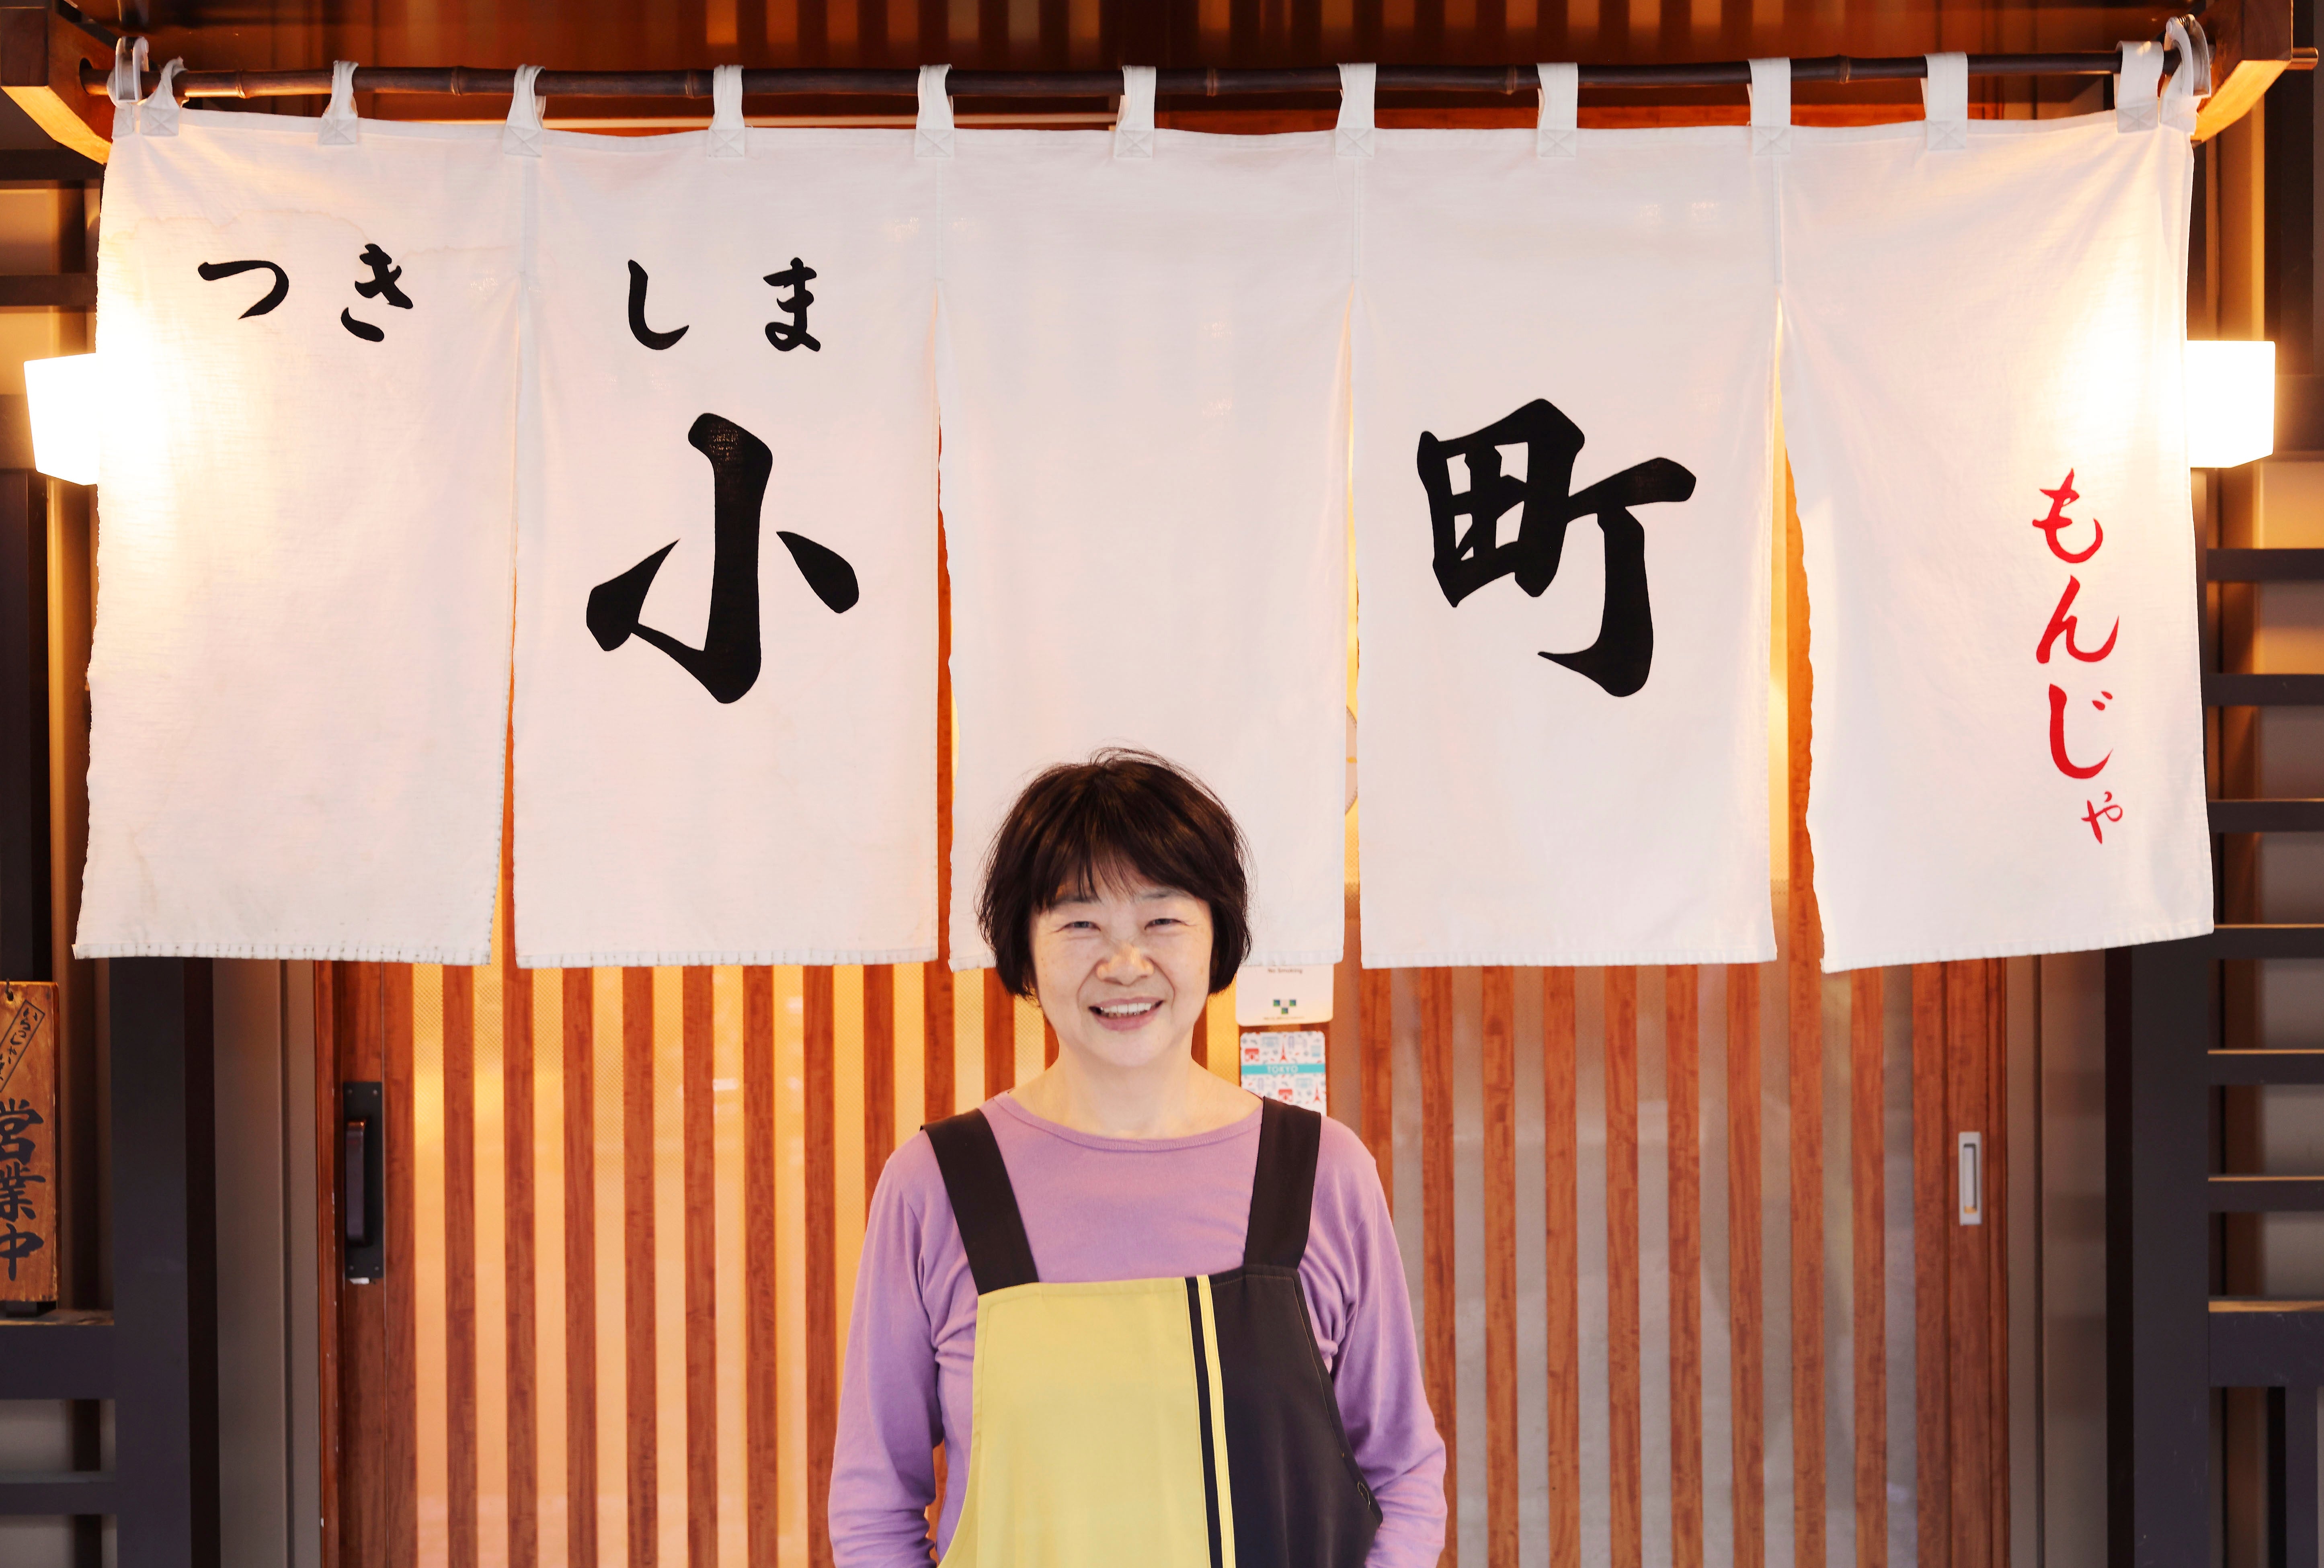 つきしま
小町
もんじゃ
No Smoking
TOKYO
営業中